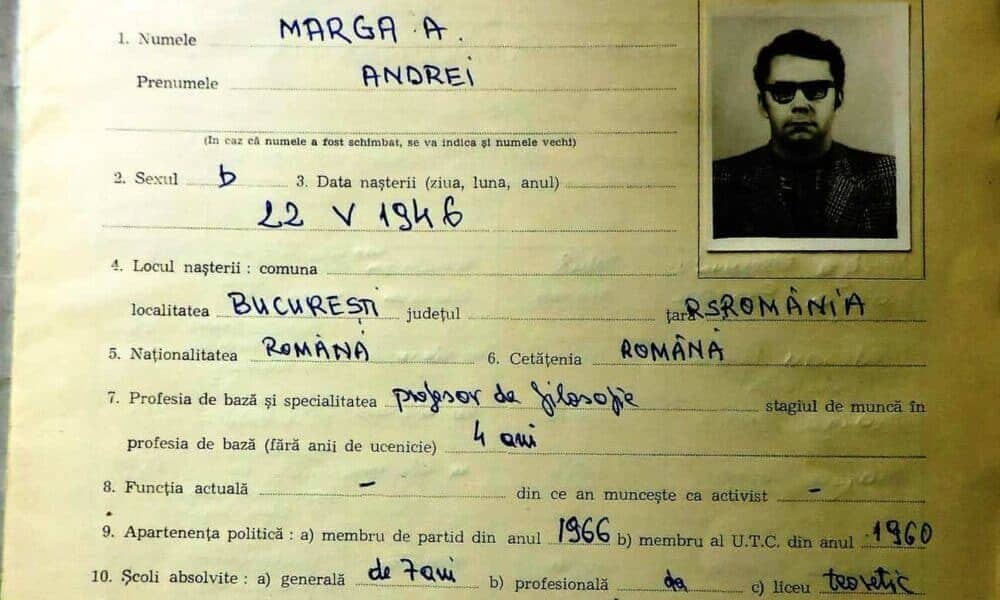 1. Numele MARGA A.
Prenumele ANDREI
(In caz că numele a fost schimbat, se va indica și numele vechi)
2. Sexul b 3. Data nașterii (ziua, luna, anul)
22 V 1946
4. Locul nașterii : comuna
localitatea BUCUREȘTI județul țara RSROMÂNIA
5. Naționalitatea ROMÂNĂ 6. Cetățenia ROMÂNĂ
7. Profesia de bază și specialitatea profesor de filosofie stagiul de muncă în
profesia de bază (fără anii de ucenicie) 4 ani
8. Funcția actuală - din ce an muncește ca activist -
9. Apartenența politică : a) membru de partid din anul 1966 b) membru al U.T.C. din anul 1960
10. Școli absolvite : a) generală de 7 ani b) profesională da c) liceu teoretic